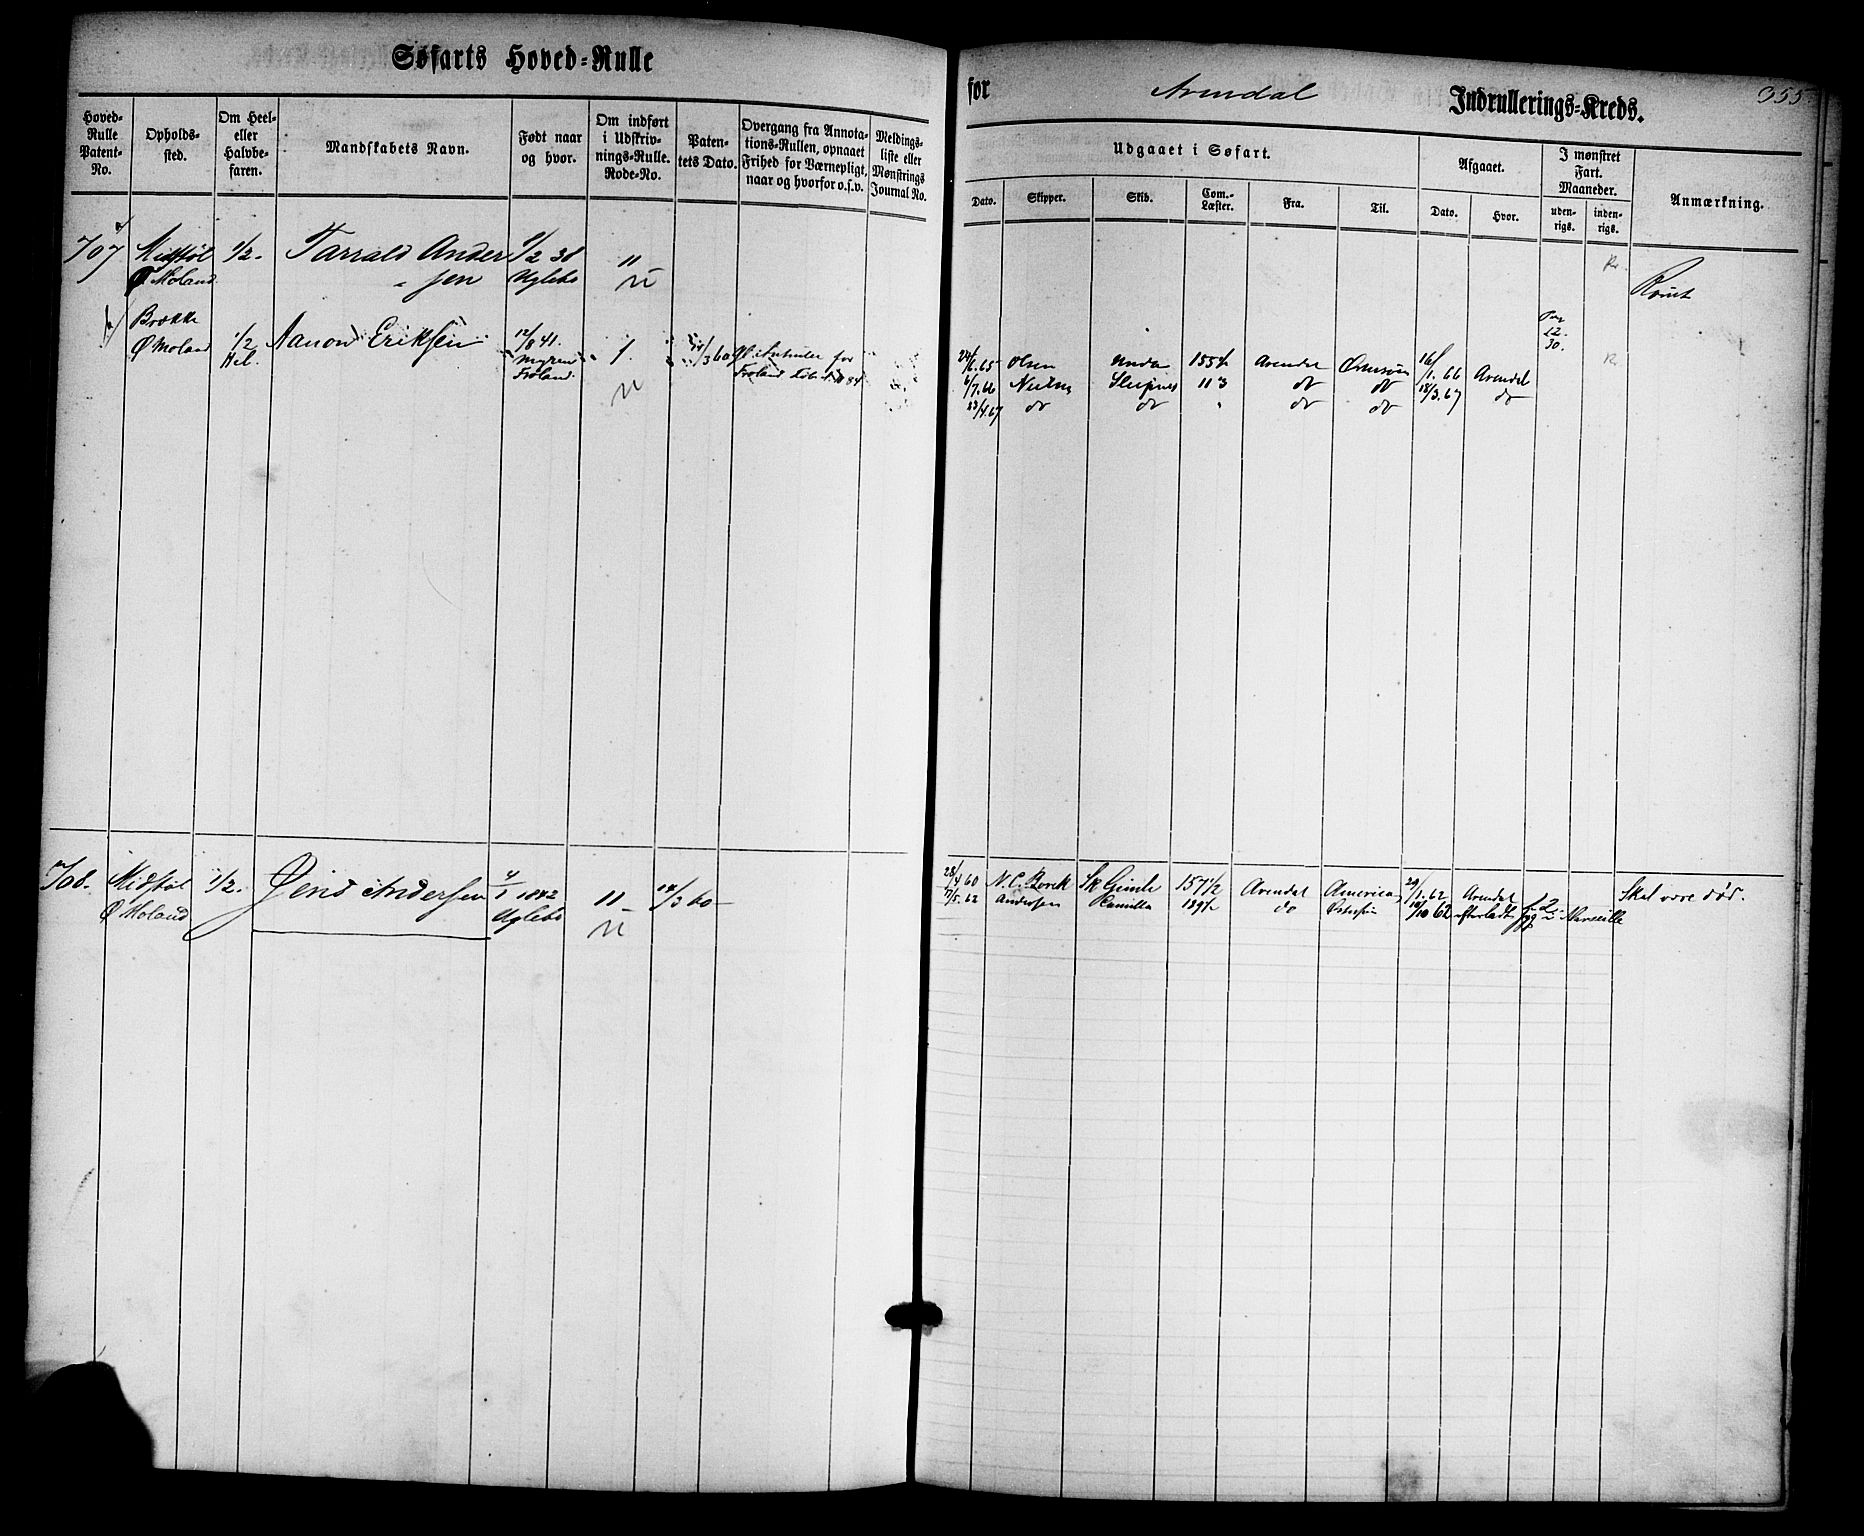 Søfarts Hoved-Rulle
Hoved-Rulle Patent-No.
Opholds-sted.
Om Heel- eller Halvbe-faren.
Mandskabets Navn.
Født naar og hvor.
Om indført i Udskriv-nings-Rulle. Rode-No.
Paten-tets Dato.
Overgang fra Annota-tions-Rullen, opnaaet Frihed for Værnepligt, naar og hvorfor o.s.v.
Meldings-liste eller Mønstrings Journal No.
707 Midtføl 1/2. Tarrald Ander 1/2 38 11
Ø Moland sen Uglebo
Brække
Ø Moland 1/2 Aanon Eriksen 12/8 41. 1.
Hel. Myren Froland
708. Midtføl 1/2. Jens Andersen 4/1 1842 11 14/3 60
Ø Moland Uglebo
for Arendal Indrullerings-Kreds. 355
Udgaaet i Søfart.
Afgaaet.
I mønstret Fart. Maaneder.
Anmærkning.
Dato. Skipper. Skib. Com.-Læster. Fra. Til. Dato. Hvor. uden-rigs. inden-rigs.
Rømt
24/6.65 Olsen 155 1/2 Arendal 16/1.66 Arendal
6/7.66 Nielsen Sleipner 113 do do 18/3.67 do
23/4.67 do do " do do
28/4 60 N. C. Borck Sk Gimle 157 1/2 Arendal America 29/1.62 Arendal Skal være død.
7/5.62 Andersen Camilla 139 1/2 do Østersøen 10/10 62 efterladt Marseille